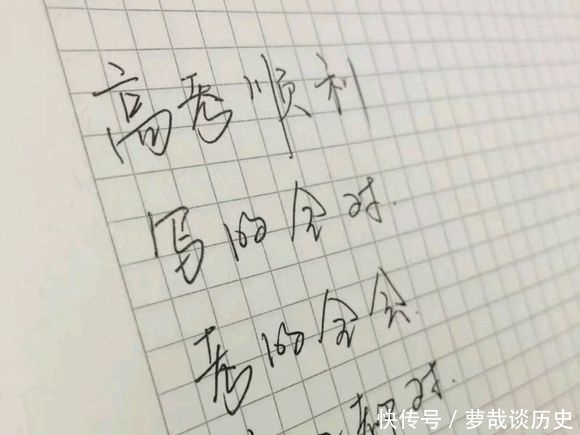 高考顺利
写的全对.
考的全会.
对.
快传号 / 萝哉谈历史